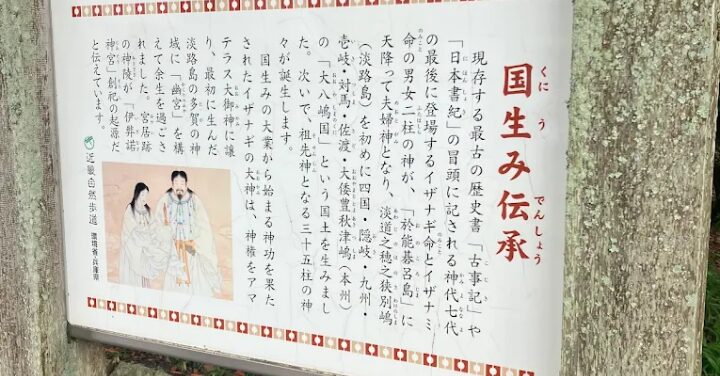 国生み伝承
現存する最古の歴史書「古事記」や
「日本書紀」の冒頭に記される神代七代
の最後に登場するイザナギ命とイザナミ
命の男女二柱の神が、「於能碁呂島」に
天降って夫婦神となり、淡道之穂之狭別嶋
（淡路島）を初めに四国・隠岐・九州・
壱岐・対馬・佐渡・大倭豊秋津嶋（本州）
の「大八嶋国」という国土を生みまし
た。次いで、祖先神となる三十五柱の神
々が誕生します。
国生みの大業から始まる神功を果た
されたイザナギの大神は、神権をアマ
テラス大御神に譲
り、最初に生んだ
淡路島の多賀の神
域に「幽宮」を構
えて余生を過ごさ
れました。宮居跡
の神陵が「伊弉諾
神宮」創祀の起源だ
と伝えています。
近畿自然歩道 環境省・兵庫県